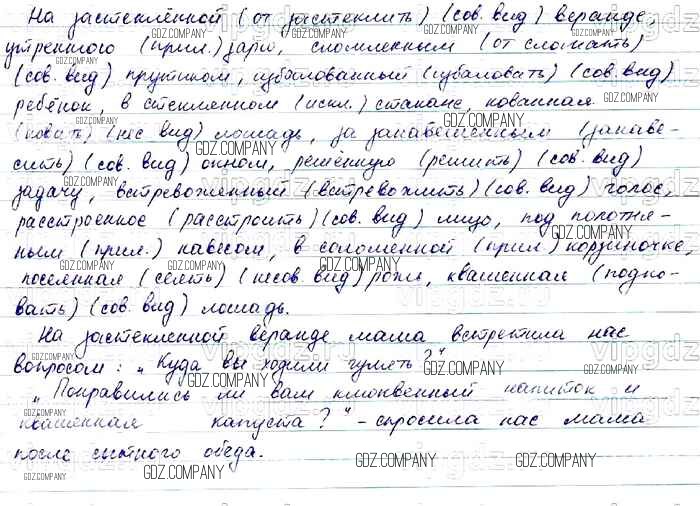 На застеклённой (от застеклить) (сов. вид) веранде,
утреннего (прил.) зарю, сломленным (от сломать)
(сов. вид) прутиком, избалованный (избаловать) (сов. вид)
ребёнок, в стеклянном (искл.) стакане, кованная
(ковать) (нес вид) лошадь, за занавешенным (занаве-
сить) (сов. вид) окном, решённую (решить) (сов. вид)
задачу, встревоженный (встревожить) (сов. вид) голос,
расстроенное (расстроить) (сов. вид) лицо, под полотня-
ным (прил.) навесом, в соломенной (прил.) корзиночке,
посеянная (сеять) (несов. вид) рожь,
вать) (сов. вид) лошадь.
На застекленной веранде мама встретила нас
вопросом: „Куда вы ходили гулять?"
„Понравились ли вам клюквенный напиток и
квашенная капуста?" - спросила нас мама
после сытного обеда.
GDZ.COMPANY
vipgdz.ru